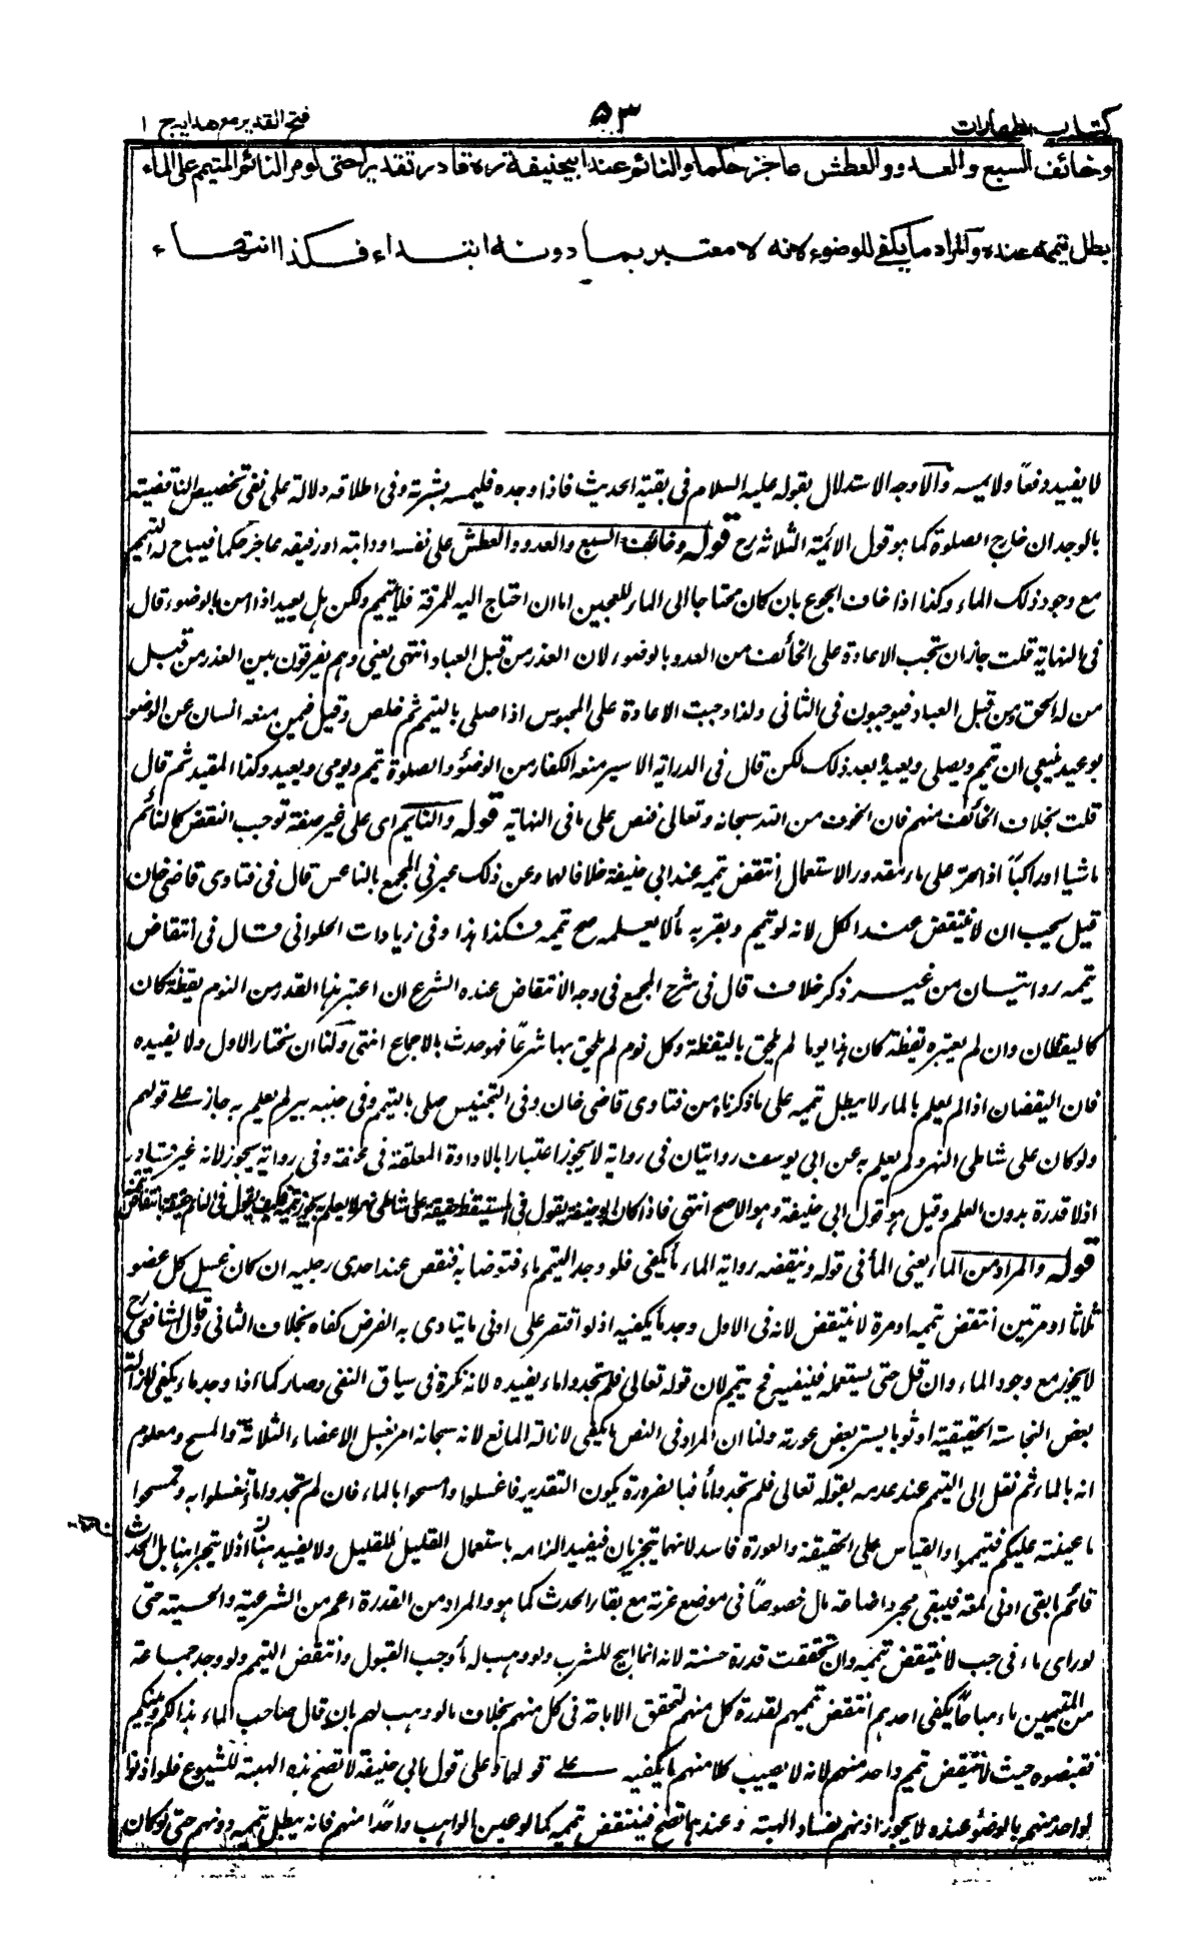 كتاب الطهارات ٥٣ فتح القدير مع هدايه ج ١
وخائف السبع والعدو والعطش عاجز حكما والنائم عند ابيحنيفة ره قادر تقديرا حتى لو مر النائم المتيمم على الماء
بطل تيممه عنده والمراد ما يكفى للوضوء لانه لا معتبر بما دونه ابتداء فكذا انتهاء
لا يفيد دفعاً ولا يمسه والاوجه الاستدلال بقوله عليه السلام فى بقية الحديث فاذا وجده فليمسه بشرته وفى اطلاقه دلالة على نفى تخصيص الناقضية
بالوجدان خارج الصلوة كما هو قول الائمة الثلاثة رح قوله وخائف السبع والعدو والعطش على نفسه او دابته او رفيقه عاجز حكما فيباح له التيمم
مع وجود ذلك الماء وكذا اذا خاف الجوع بان كان محتاجا الى الماء للعجين اما ان احتاج اليه للمرقة فلا يتيمم ولكن هل يعيد اذا امن بالوضوء قال
فى النهاية قلت جاز ان تجب الاعادة على الخائف من العدو بالوضوء لان العذر من قبل العباد انتهى يعنى وهم يفرقون بين العذر من قبل
من له الحق ومن قبل العباد فيوجبون فى الثانى ولذا وجبت الاعادة على المحبوس اذا صلى بالتيمم ثم خلص وقيل فيمن منعه انسان عن الوضو
بوعيد ينبغى ان تيمم ويصلى ويعيد بعد ذلك لكن قال فى الدراية الاسير منعه الكفار من الوضوء والصلوة تيمم ويومى ويعيد وكذا المقيد ثم قال
قلت بخلاف الخائف منهم فان الخوف من الله سبحانه وتعالى فنص على ما فى النهاية قوله والنايم اى على غير صفة توجب النقض كالنائم
ماشيا او راكبا اذا مر على ماء مقدور الاستعمال انتقض تيممه عند ابى حنيفة خلافا لهما وعن ذلك عبر فى المجمع بالناعس قال فى فتاوى قاضى خان
قيل يجب ان لا ينتقض عند الكل لانه لو تيمم وبقربه ماء لا يعلمه صح تيممه فكذا هذا وفى زيادات الحلوانى قال فى انتقاض
تيممه روايتان من غير ذكر خلاف قال فى شرح المجمع فى وجه الانتقاض عنده الشرع ان اعتبر هذا القدر من النوم يقظة كان
كاليقظان وان لم يعتبره يقظة كان هذا يوما لم يلحق باليقظة وكل نوم لم يلحق بها شرعاً فهو حدث بالاجماع انتهى ولنا ان نختار الاول ولا يفيده
فان اليقضان اذا لم يعلم بالماء لا يبطل تيممه على ما ذكرناه من فتاوى قاضى خان وفى التجنيس صلى بالتيمم وفى جنبه بير لم يعلم به جاز على قولهم
ولو كان على شاطى النهر ولم يعلم به عن ابى يوسف روايتان فى رواية لا يجوز اعتبارا بالاداوة المعلقة فى عنقه وفى رواية يجوز لانه غير قادر
اذ لا قدرة بدون العلم وقيل هو قول ابى حنيفة وهو الاصح انتهى فاذا كان ابو حنيفة يقول فى المستيقظ حقيقة على شاطى نهر لا يعلم به يجوز تيممه فكيف يقول فى النائم حقيقة بانتقاض تيممه
قوله والمراد من الماء يعنى الماء فى قوله وينقضه رواية الماء ما يكفى فلو وجد المتيمم ماء فتوضا به فنقص عند احدى رجليه ان كان غسل كل عضو
ثلاثا او مرتين انتقض تيممه او مرة لا ينتقض لانه فى الاول وجد ما يكفيه اذ لو اقتصر على ادنى ما يتادى به الفرض كفاه بخلاف الثانى وقال الشافعى رح
لا يجوز مع وجود الماء وان قل حتى يستعمله فيفنيه فح يتيمم لان قوله تعالى فلم تجدوا ماء يفيده لانه نكرة فى سياق النفى وصار كما اذا وجد ماء يكفى لازالة
بعض النجاسة الحقيقية او ثوبا يستر بعض عورته ولنا ان المراد فى النص ما يكفى لازالة المانع لانه سبحانه امر بغسل الاعضاء الثلاثة والمسح ومعلوم
انه بالماء ثم نقل الى التيمم عند عدمه بقوله تعالى فلم تجدوا ماء فبالضرورة يكون التقدير فاغسلوا وامسحوا بالماء فان لم تجدوا ماء تغسلوا به وتمسحوا
ما عينته عليكم فتيمموا والقياس على الحقيقة والعورة فاسد لانهما يتجزيان فيفيد الزامه باستعمال القليل للقليل ولا يفيد هنا اذ لا يتجزا هنا بل الحدث
قائم ما بقى ادنى لمعة فيبقى مجرد اضاعة مال خصوصاً فى موضع عزته مع بقاء الحدث كما هو والمراد من القدرة اعم من الشرعية والحسية حتى
لو راى ماء فى حب لا ينتقض تيممه وان تحققت قدرة حسنة لانه انما ابيح للشرب ولو وهب له ماء وجب القبول وانتقض التيمم ولو وجد جماعة
من المتيممين ماء مباحاً يكفى احدهم انتقض تيممهم لقدرة كل منهم لتحقق الاباحة فى كل منهم بخلاف ما لو وهب لهم بان قال صاحب الماء هذا لكم وبينكم
فقبضوه حيث لا ينتقض تيمم واحد منهم لانه لا يصيب كلا منهم ما يكفيه على قولهما وعلى قول ابى حنيفة لا تصح هذه الهبة للشيوع فلو اذنوا
لواحد منهم بالوضوء عنده لا يجوز اذنهم لفساد الهبة وعندهما تصح فينتقض تيممه كما لو عين الواهب واحدًا منهم فانه يبطل تيممه دونهم حتى لو كان